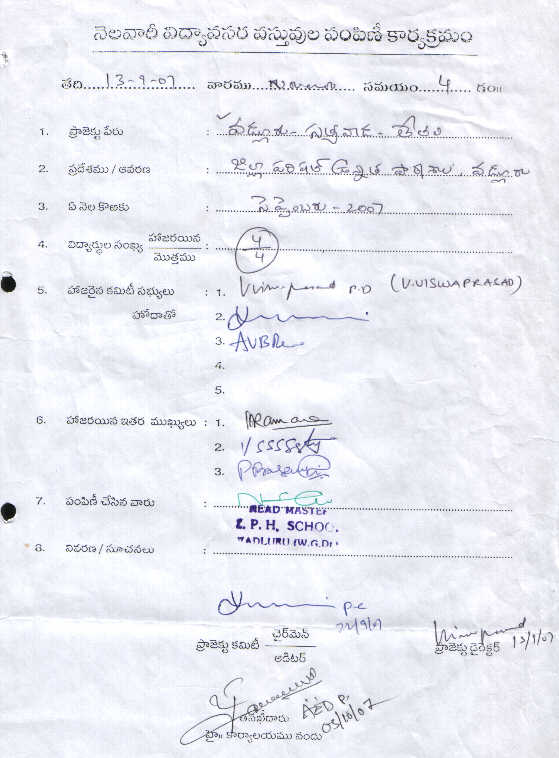 నెలవారీ విద్యావసర వస్తువుల పంపిణీ కార్యక్రమం
తది.....13-9-07 వారము.......... సమయం.....4..... గం॥
1. ప్రాజెక్టు పేరు : వడ్లూరు - సత్యవాడ - తేతలి
2. ప్రదేశము / ఆవరణ : జిల్లా పరిషత్ ఉన్నత పాఠశాల, వడ్లూరు
3. ఏ నెల కొఱకు : సెప్టెంబరు - 2007
4. విద్యార్థుల సంఖ్య హాజరయిన : 4
మొత్తము 4
5. హాజరైన కమిటీ సభ్యులు : 1. P.D (V.VISWAPRASAD)
హోదాతో 2.
3. AVBRe
4.
5.
6. హాజరయిన ఇతర ముఖ్యులు : 1.
2.
3.
7. పంపిణీ చేసిన వారు :
HEAD MASTER
Z. P. H. SCHOOL
WADLURU (W.G.Dt)
8. నివరణ / సూచనలు :
P.C
22/9/07
ప్రాజెక్టు కమిటీ ఛైర్‌మెన్
ఆడిటర్
ప్రాజెక్టు డైరెక్టర్ 13/9/07
తనిఖీదారు
హై॥ కార్యాలయము నందు 03/10/07